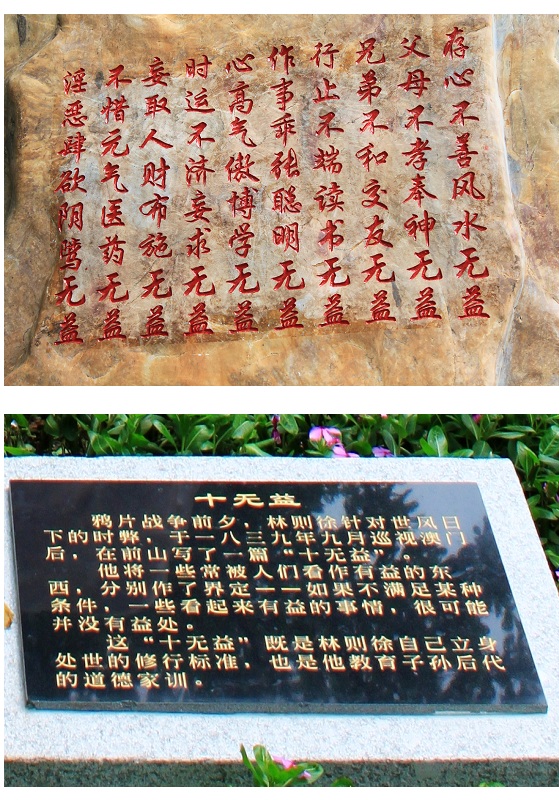 存心不善风水无益
父母不孝奉神无益
兄弟不和交友无益
行止不端读书无益
作事乖张聪明无益
心高气傲博学无益
时运不济妄求无益
妄取人财布施无益
不惜元气医药无益
淫恶肆欲阴骘无益
十无益
鸦片战争前夕，林则徐针对世风日
下的时弊，于一八三九年九月巡视澳门
后，在前山写了一篇“十无益”。
他将一些常被人们看作有益的东
西，分别作了界定——如果不满足某种
条件，一些看起来有益的事情，很可能
并没有益处。
这“十无益”既是林则徐自己立身
处世的修行标准，也是他教育子孙后代
的道德家训。